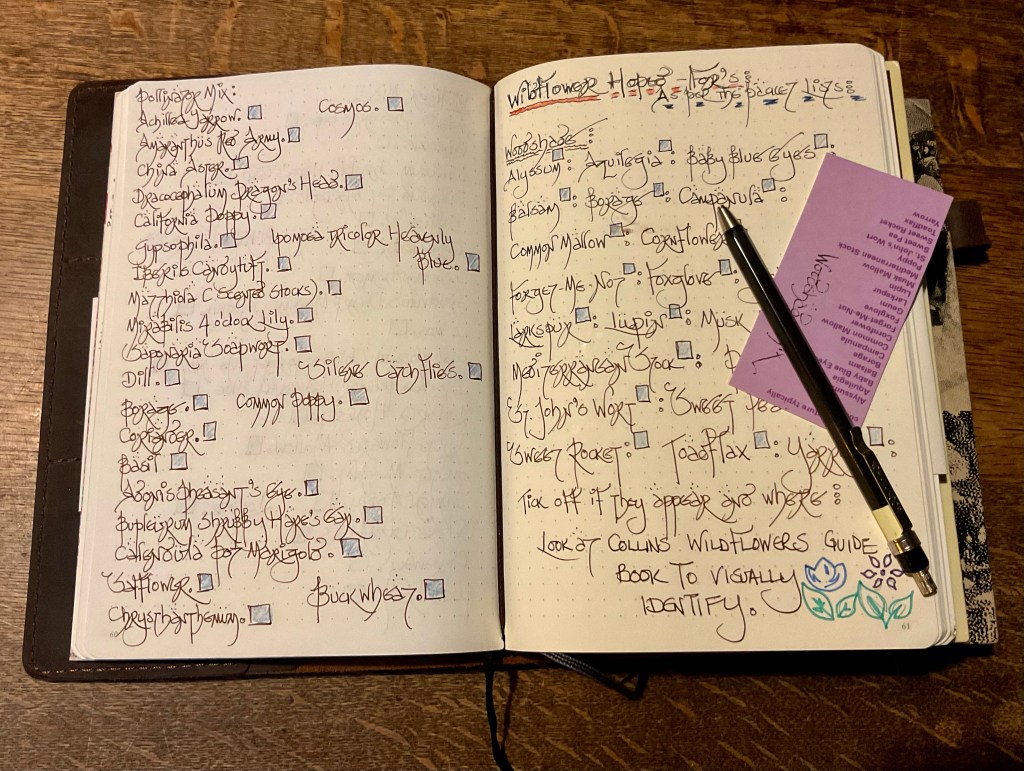 Pollinator Mix:
Achillea Yarrow.
Cosmos.
Amaranthus Red Army.
China Aster.
Dracocephalum Dragon's Head.
California Poppy.
Gypsophila.
Ipomoea Tricolor Heavenly
Blue.
Iberis Candytuft.
Matthiola (Scented Stocks).
Mirabilis 4 o'clock Lily.
Saponaria Soapwort.
Silene Catchflies.
Dill.
Borage.
Common Poppy.
Coriander.
Basil
Adonis Pheasant's Eye.
Bupleurum Shrubby Hare's Ear.
Calendula Pot Marigold.
Safflower.
Buckwheat.
Chrysthanthemum.
60
Wildflower Hoped-For's:
As per the packet Lists:
Woodshade:
Alyssum: Aquilegia: Baby Blue Eyes
Balsam: Borage: Campanula:
Common Mallow: Cornflower
Forget-Me-Not: Foxglove:
Larkspur: Lupin: Musk
Mediterranean Stock:
St John's Wort: Sweet Pea
Sweet Rocket: Toadflax: Yarrow
Tick off if they appear and where:
Look at Collins Wildflowers Guide
Book to visually
identify.
61
mixture typically
Alyssum
Aquilegia
Baby Blue Eyes
Balsam
Borrage
Campanula
Common Mallow
Cornflower
Forget-Me-Not
Foxglove
Gaura
Larkspur
Lupin
Musk Mallow
Mediterranean Stock
Poppy
St. John's Wurt
Sweet Pea
Sweet Rocket
Toadflax
Yarrow